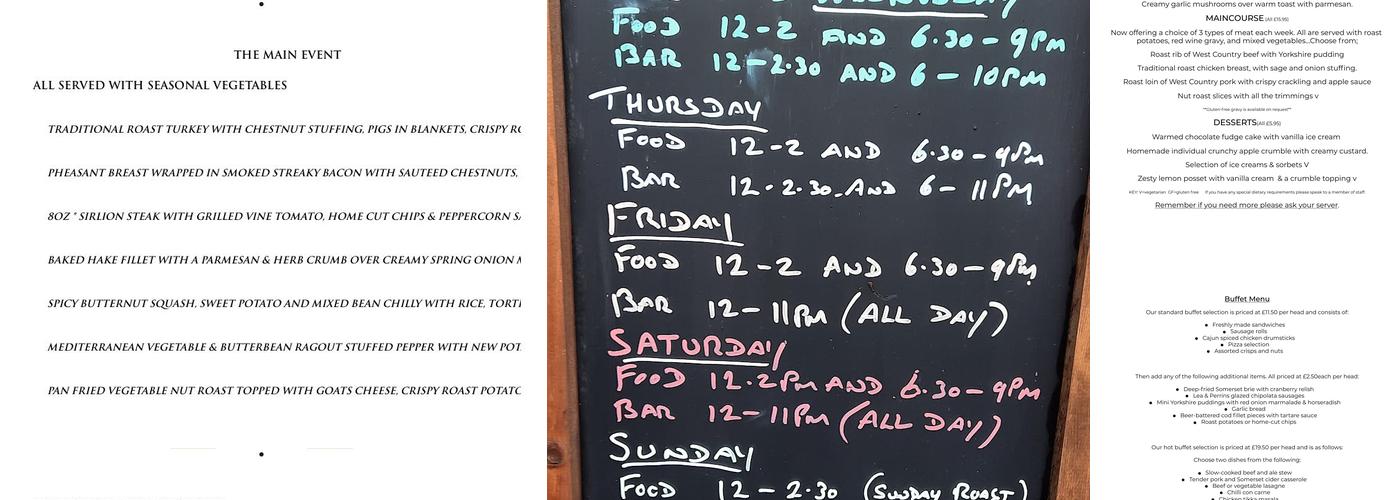 THE MAIN EVENT
ALL SERVED WITH SEASONAL VEGETABLES
TRADITIONAL ROAST TURKEY WITH CHESTNUT STUFFING, PIGS IN BLANKETS, CRISPY
PHEASANT BREAST WRAPPED IN SMOKED STREAKY BACON WITH SAUTEED CHESTNUTS,
8OZ * SIRLION STEAK WITH GRILLED VINE TOMATO, HOME CUT CHIPS & PEPPERCORN
BAKED HAKE FILLET WITH A PARMESAN & HERB CRUMB OVER CREAMY SPRING ONION
SPICY BUTTERNUT SQUASH, SWEET POTATO AND MIXED BEAN CHILLY WITH RICE,
MEDITERRANEAN VEGETABLE & BUTTERBEAN RAGOUT STUFFED PEPPER WITH NEW
PAN FRIED VEGETABLE NUT ROAST TOPPED WITH GOATS CHEESE, CRISPY ROAST
FOOD 12-2 AND 6.30-9PM
BAR 12-2.30 AND 6-10PM
THURSDAY
FOOD 12-2 AND 6.30-9PM
BAR 12-2.30 AND 6-11PM
FRIDAY
FOOD 12-2 AND 6.30-9PM
BAR 12-11PM (ALL DAY)
SATURDAY
FOOD 12.2PM AND 6.30-9PM
BAR 12-11PM (ALL DAY)
SUNDAY
FOOD 12-2.30 (SUNDAY ROAST)
Creamy garlic mushrooms over warm toast with parmesan.
MAINCOURSE (All £15.95)
Now offering a choice of 3 types of meat each week. All are served with roast
potatoes, red wine gravy, and mixed vegetables...Choose from;
Roast rib of West Country beef with Yorkshire pudding
Traditional roast chicken breast, with sage and onion stuffing.
Roast loin of West Country pork with crispy crackling and apple sauce
Nut roast slices with all the trimmings v
**Gluten-free gravy is available on request**
DESSERTS(All £5.95)
Warmed chocolate fudge cake with vanilla ice cream
Homemade individual crunchy apple crumble with creamy custard.
Selection of ice creams & sorbets V
Zesty lemon posset with vanilla cream & a crumble topping v
KEY: V=vegetarian GF=gluten free If you have any special dietary requirements please speak to a member of staff.
Remember if you need more please ask your server.
Buffet Menu
Our standard buffet selection is priced at £11.50 per head and consists of:
● Freshly made sandwiches
● Sausage rolls
● Cajun spiced chicken drumsticks
● Pizza selection
● Assorted crisps and nuts
Then add any of the following additional items. All priced at £2.50each per head:
● Deep-fried Somerset brie with cranberry relish
● Lea & Perrins glazed chipolata sausages
● Mini Yorkshire puddings with red onion marmalade & horseradish
● Garlic bread
● Beer-battered cod fillet pieces with tartare sauce
● Roast potatoes or home-cut chips
Our hot buffet selection is priced at £19.50 per head and is as follows:
Choose two dishes from the following:
● Slow-cooked beef and ale stew
● Tender pork and Somerset cider casserole
● Beef or vegetable lasagne
● Chilli con carne
● Chicken tikka masala